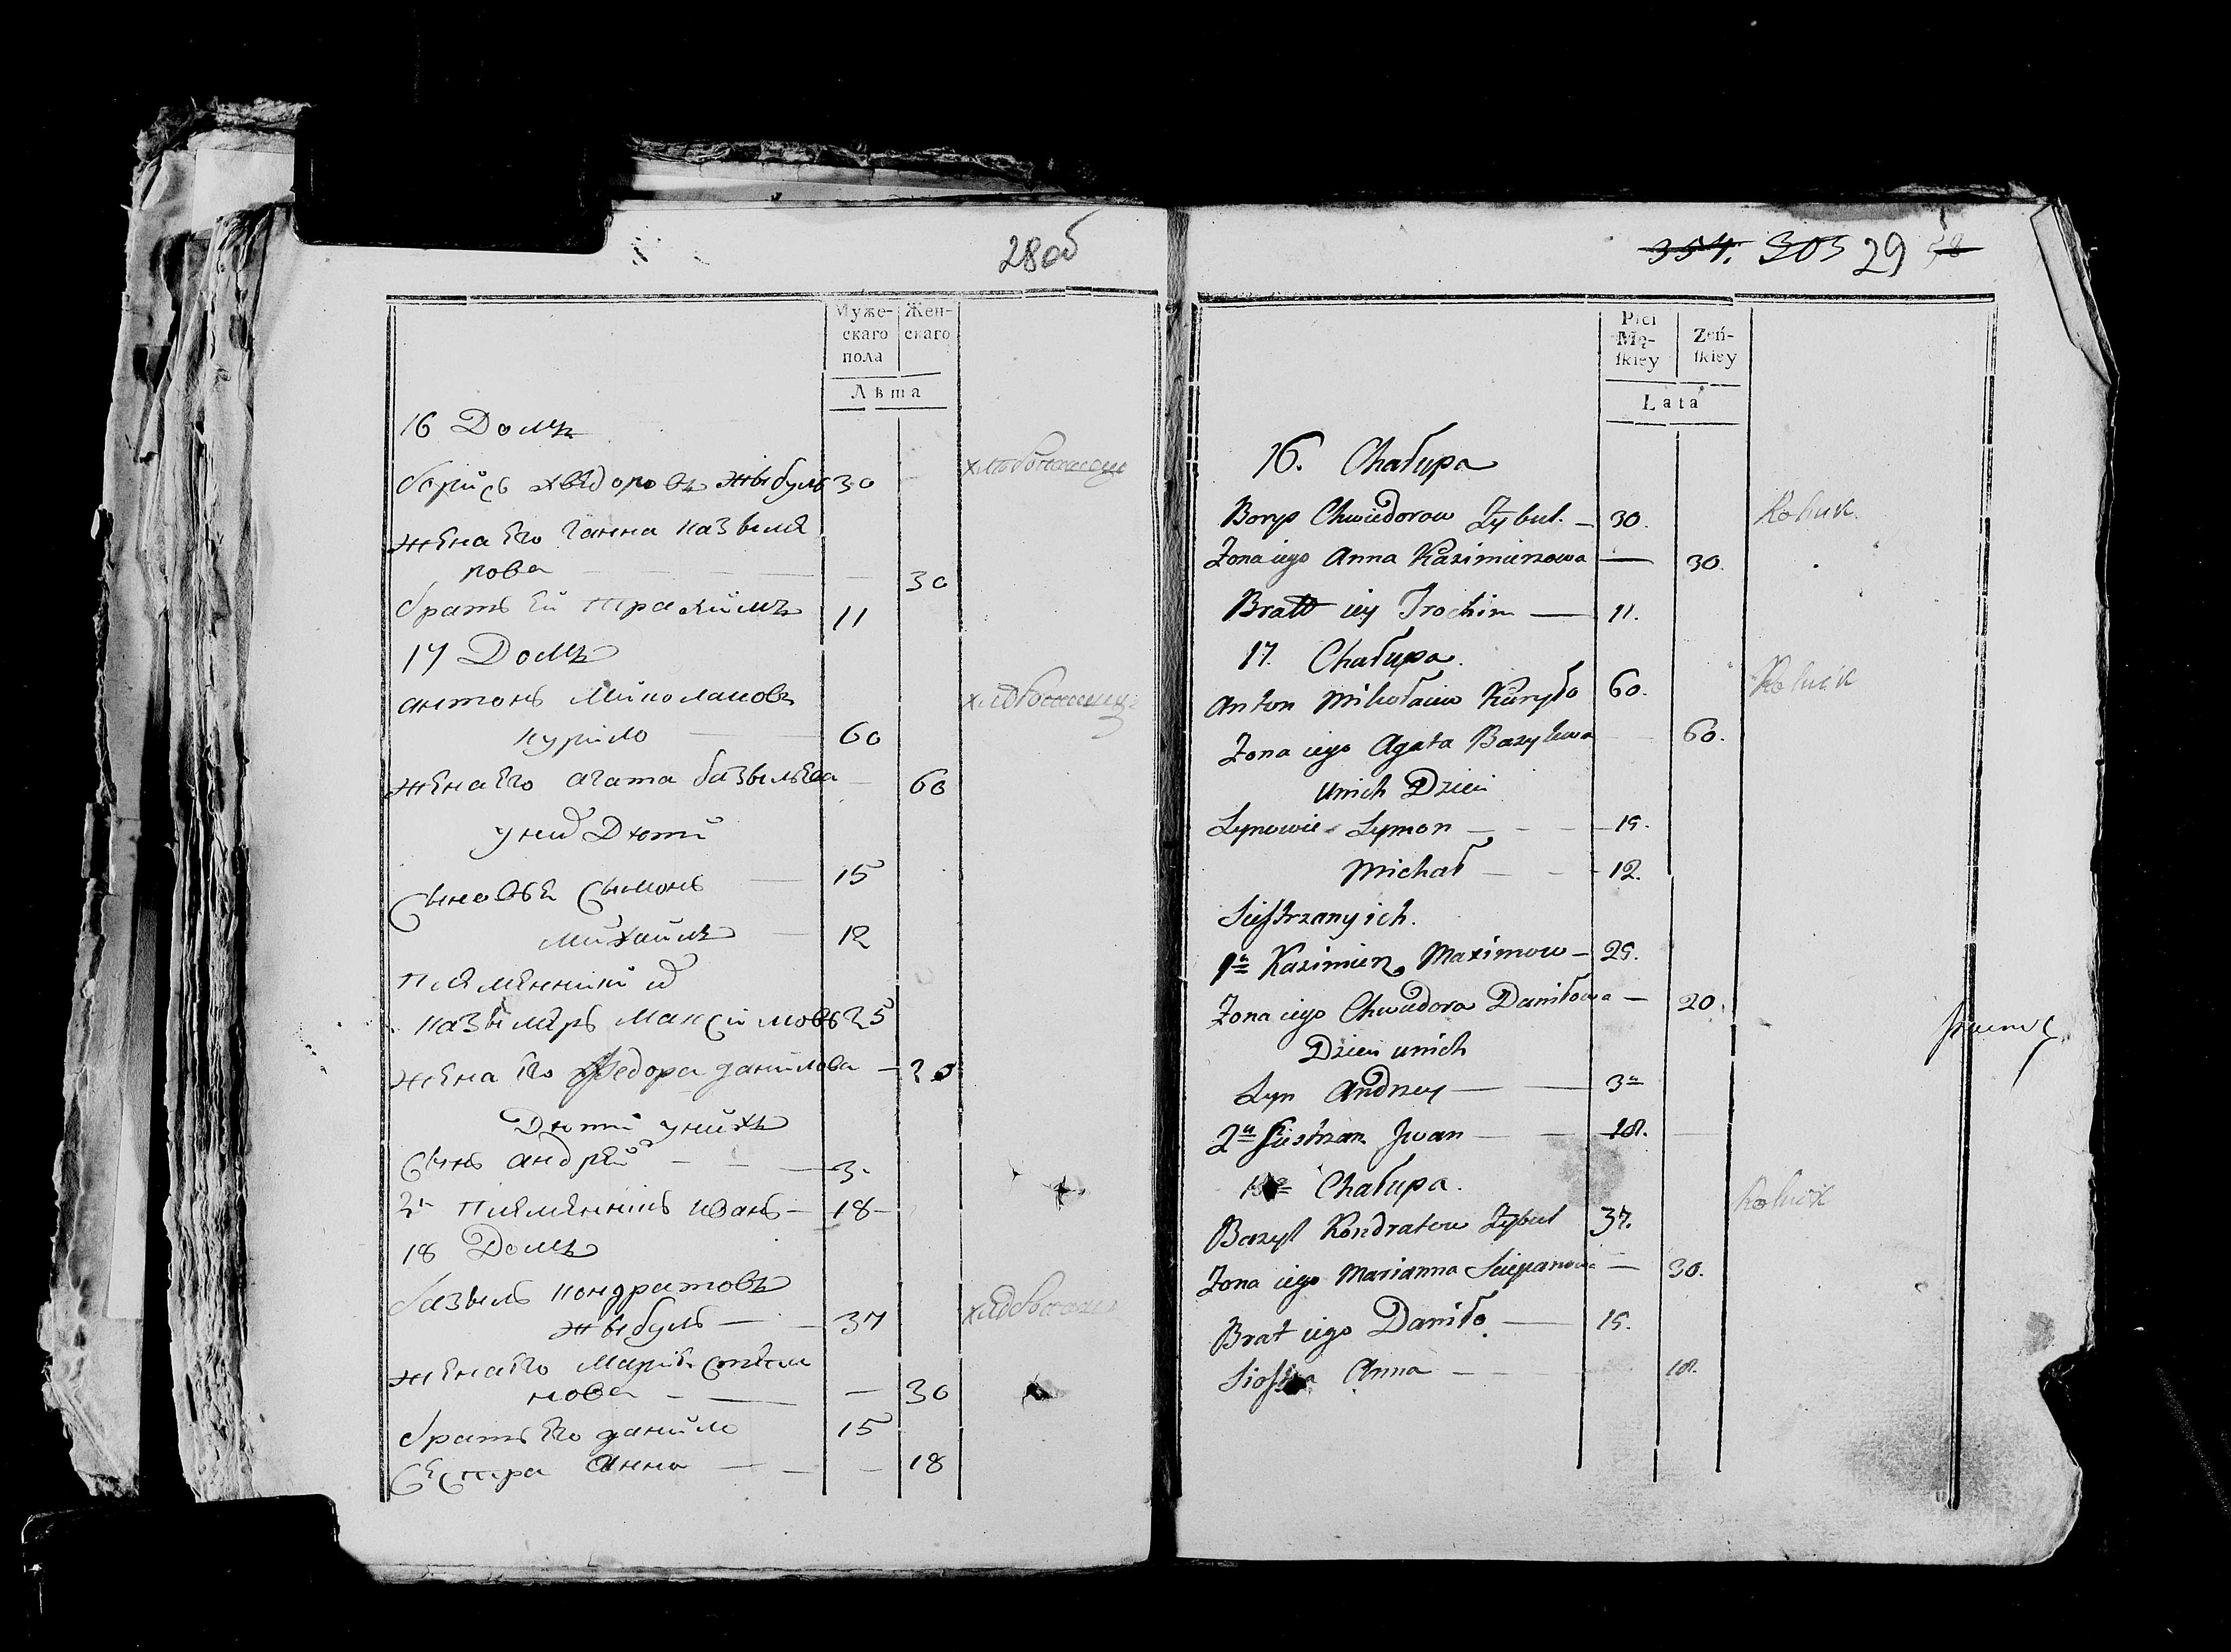 28об
Муже-
скаго
пола
Жен-
скаго
Лѣта
16 Домъ
борисъ хвѣдоровъ жибуль 30
хлебопашец
жена его ганна казыме
рова 30
братъ ей трахимъ 11
17 Домъ
антонъ миколаиовъ
хлебопашец
курило 60
жена его агата базылева 60
у них Дети
Сыновъе Сымонъ 15
михаилъ 12
племенники их
казымеръ максимовъ 25
жена его Федора данилова 20
Дети у нихъ
Сынъ андрей 3
2й племенникъ иванъ 18
18 Домъ
базыль кондратовъ
жыбуль 37
хлебопашец
жена его Мария степа
нова 30
братъ его данило 15
Сестра Анна 18
354. 303 29 58
Płci
Mę-
ſkiey
Żeń-
ſkiey
Lata
16. Chałupa
Borys Chwiedorow Zybul. 30. Rolnik.
Zona iego Anna Kazimierzowa 30.
Bratt iey Trochim 11.
17. Chałupa.
Anton Mikołaiew Kuryło 60. Rolnik
Zona iego Agata Bazylewa 60.
Unich Dzieci
Synowie Symon 15.
Michał 12.
Siestrzany ich.
1n Kazimierz Maximow 25.
Zona iego Chwiedora Daniłowa 20.
Dzieci unich
Syn Andrzey 3
2n Siestrzan Jwan 18.
18 Chałupa.
Bazyl Kondratow Zybul 37. Rolnik
Zona iego Marianna Sciepanowa 30.
Brat iego Daniło 15.
Siostra Anna 18.